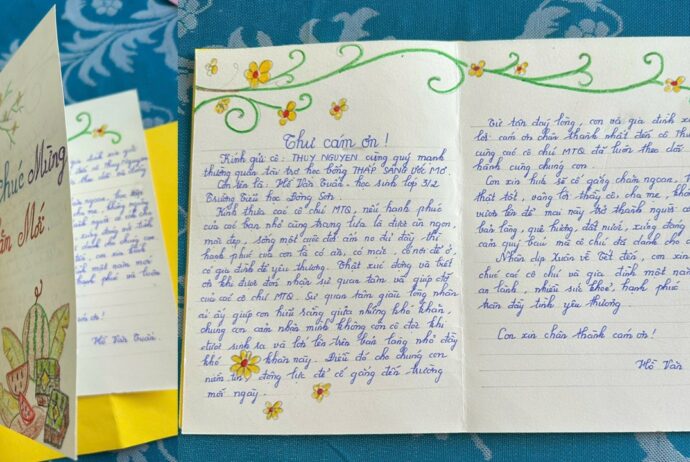 Chúc Mừng
Mới.
Hồ Văn Tuấn.
Thư cám ơn!
Kính gửi cô: THUY NGUYEN cùng quý mạnh
thường quân tài trợ học bổng THẮP SÁNG ƯỚC MƠ.
Con tên là: Hồ Văn Tuấn. học sinh lớp 3/2
Trường Tiểu học Đông Sơn
Kính thưa các cô chú MTQ, nếu hạnh phúc
của các bạn nhỏ cùng trang lứa là được ăn ngon,
mặc đẹp, sống một cuộc đời ấm no đủ đầy thì
hạnh phúc của con là có ăn, có mặc, có nơi để ở,
có gia đình để yêu thương. Thật xúc động và biết
ơn khi được đón nhận sự quan tâm và giúp đỡ
của các cô chú MTQ. Sự quan tâm giàu lòng nhân
ái ấy giúp con hiểu rằng giữa những khó khăn,
chúng con cảm nhận mình không còn cô đơn khi
được sinh ra và lớn lên trên bản làng nhỏ đầy
khó khăn này. Điều đó cho chúng con
niềm tin, động lực để cố gắng đến trường
mỗi ngày.
Từ tận đáy lòng, con và gia đình xi
lời cám ơn chân thành nhất đến cô Th
cùng các cô chú MTQ đã luôn theo dõi
hành cùng chúng con.
Con xin hứa sẽ cố gắng chăm ngoan,
thật tốt, vâng lời thầy cô, cha mẹ,
vươn lên để mai này trở thành người c
bản làng, quê hương, đất nước, xứng đáng
cảm quý báu mà cô chú đã dành cho c
Nhân dịp Xuân về Tết đến, con xin
chúc các cô chú và gia đình một năm
an lành, nhiều sức khoẻ, hạnh phúc
tràn đầy tình yêu thương.
Con xin chân thành cám ơn!
Hồ Văn